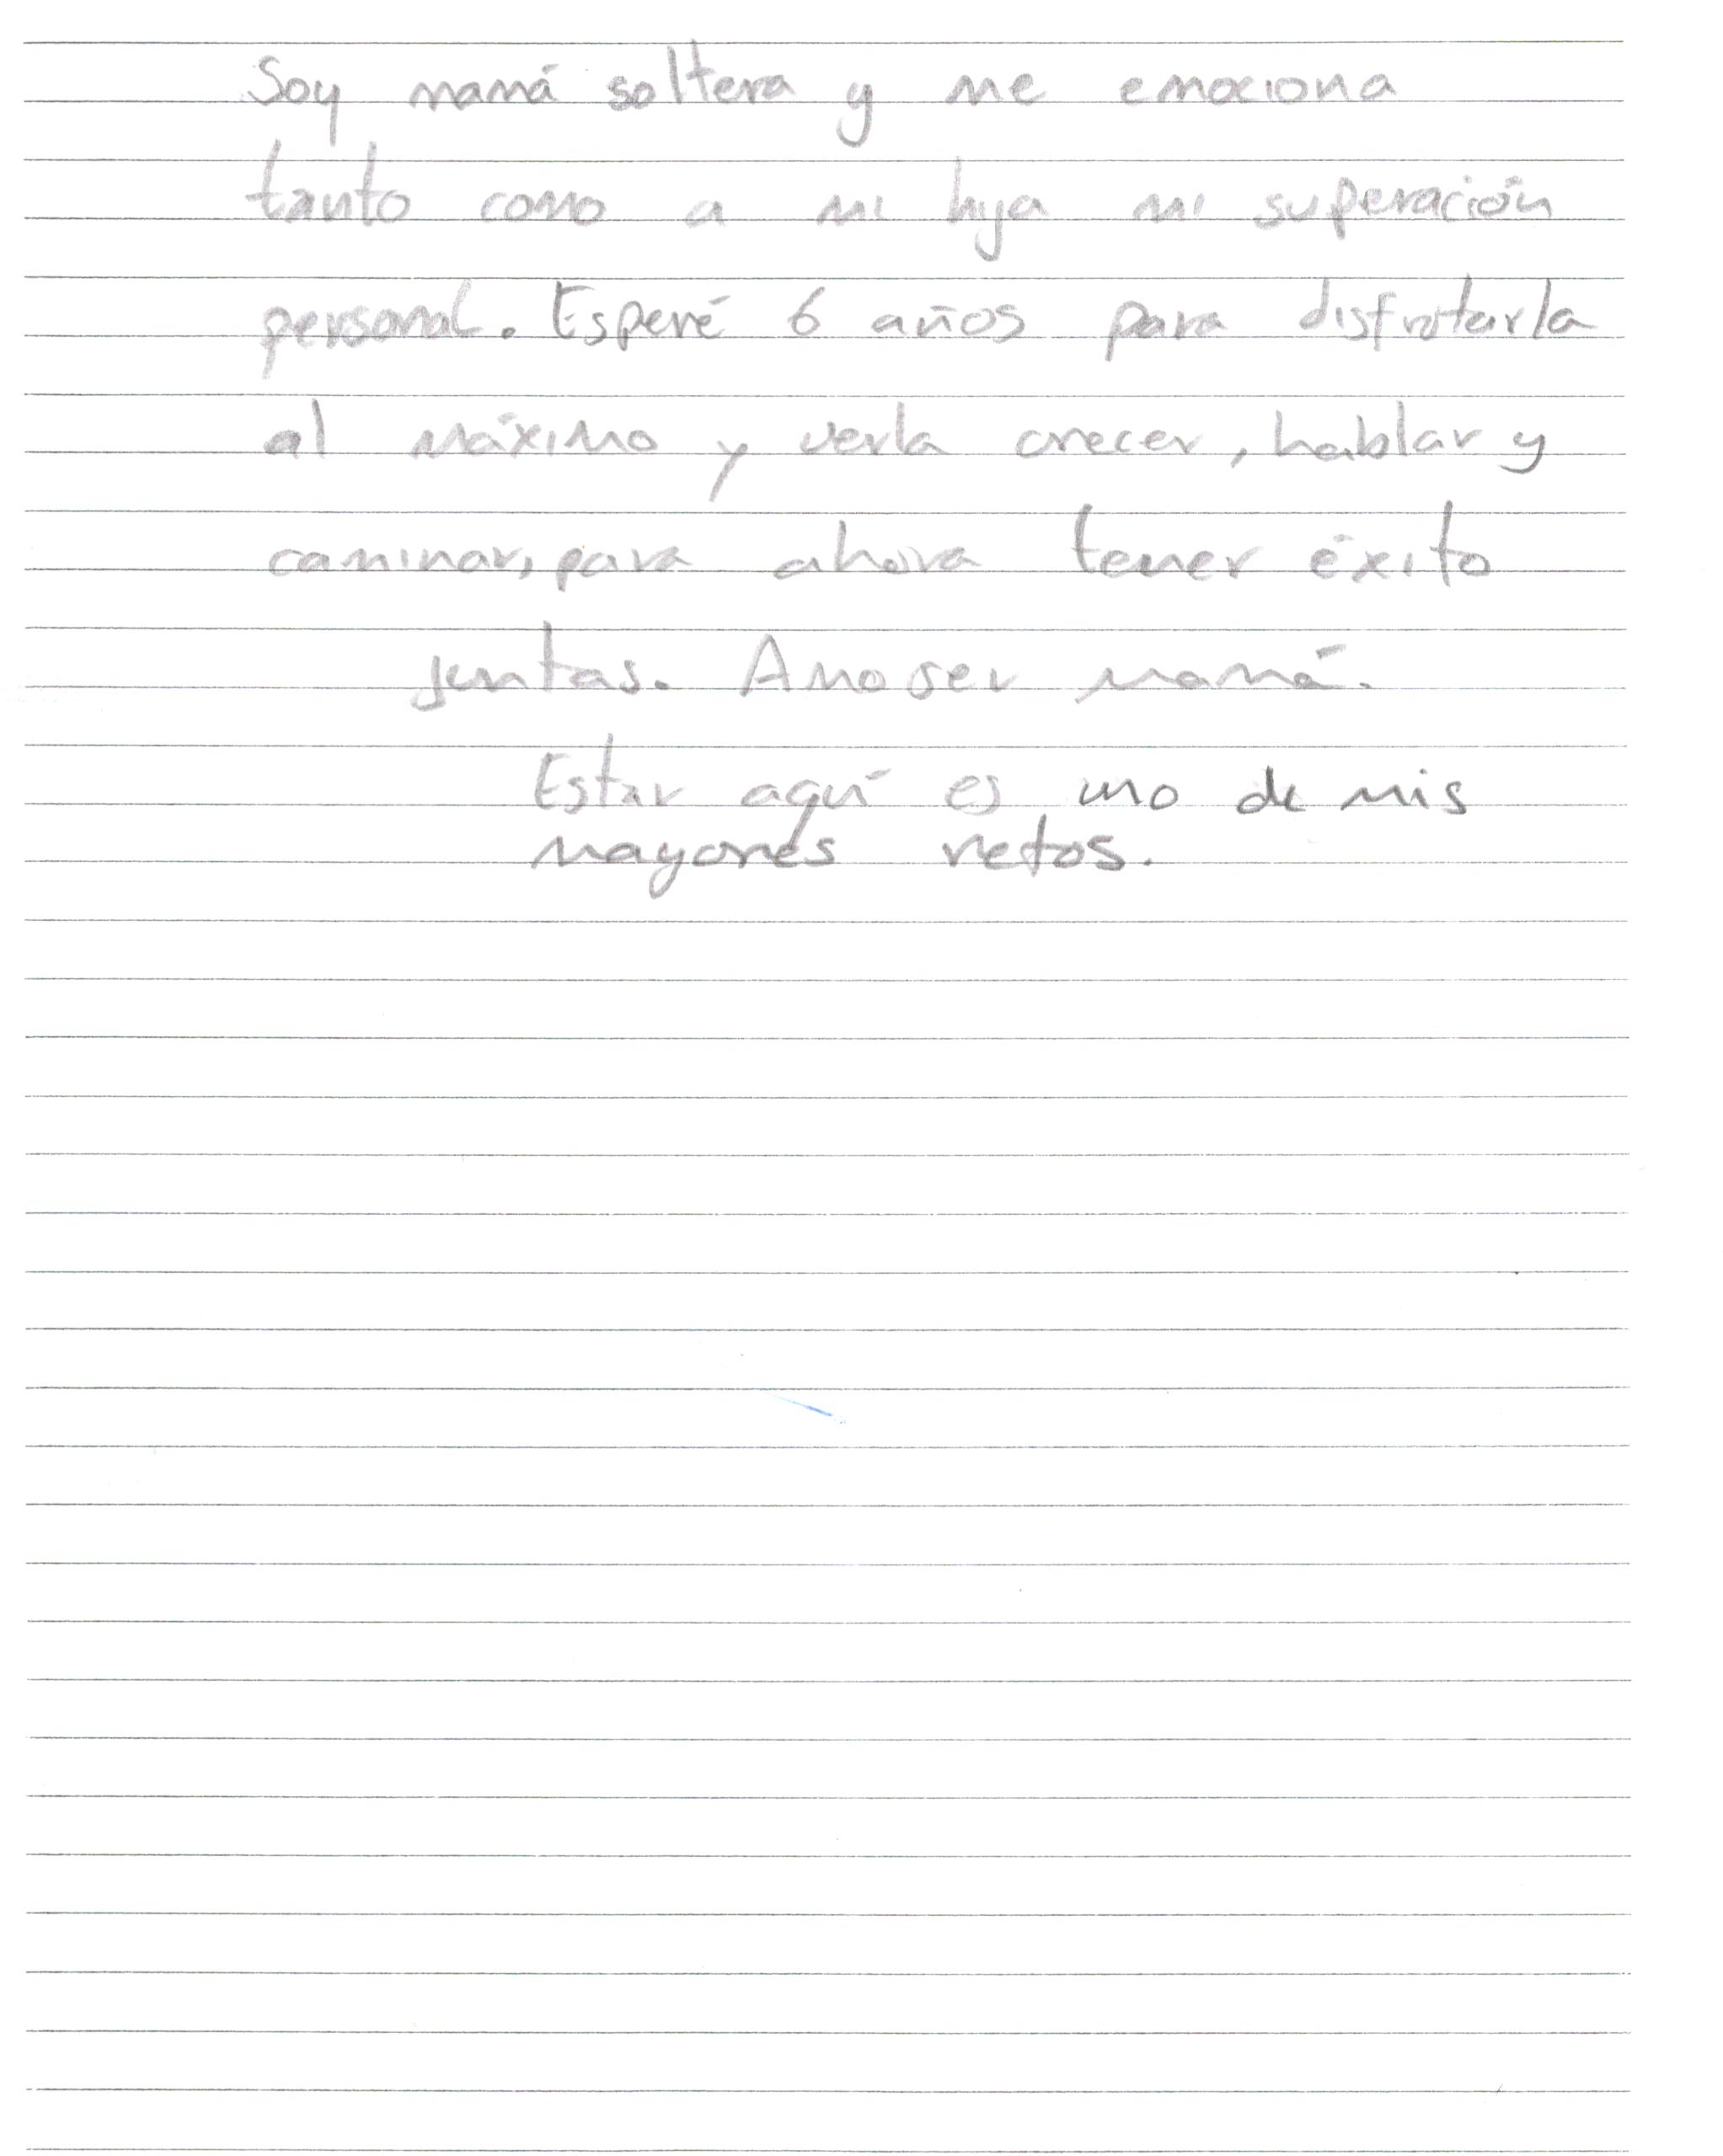 Soy mamá soltera y me emociona
tanto como a mi hija mi superación
personal. Esperé 6 años para disfrutarla
al máximo y verla crecer, hablar y
caminar, para ahora tener éxito
juntas. Amo ser mamá.
Estar aquí es uno de mis
mayores retos.